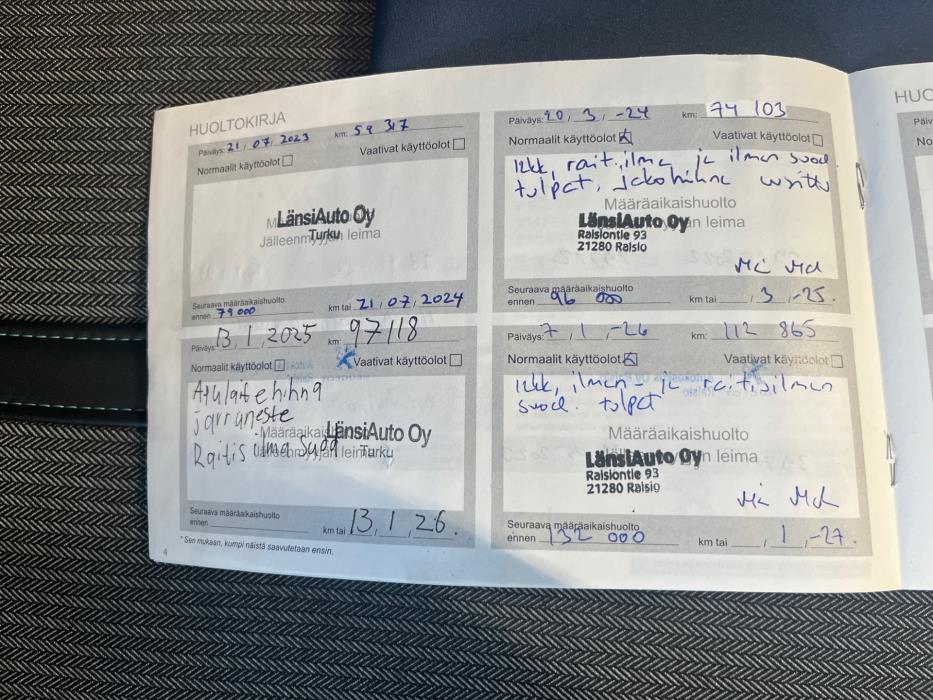 HUOLTOKIRJA
Päiväys: 21 / 07 / 2023 km: 59 317
Normaalit käyttöolot Vaativat käyttöolot
LänsiAuto Oy
Turku
Jälleenmyyjän leima
Seuraava määräaikaishuolto
ennen 79 000 km tai 21 / 07 / 2024
Päiväys: 20 / 3 / -24 km: 74 103
Normaalit käyttöolot Vaativat käyttöolot
12kk, rait.ilma ja ilman suod.
tulpat, Jakohihna
Määräaikaishuolto
LänsiAuto Oy
Raisiontie 93
21280 Raisio
Seuraava määräaikaishuolto
ennen 96 000 km tai / 3 / -25.
Päiväys: 13 / 1 / 2025 km: 97118
Normaalit käyttöolot Vaativat käyttöolot
Apulaitehihna
jarruneste
Raitis ilma suod
Määräaikaishuolto
LänsiAuto Oy
Jälleenmyyjän leima
Turku
Seuraava määräaikaishuolto
ennen km tai 13 / 1 / 26.
Päiväys: 7 / 1 / -26 km: 112 865
Normaalit käyttöolot Vaativat käyttöolot
12kk, ilman- ja raitisilman
suod. tulpat
Määräaikaishuolto
LänsiAuto Oy
Raisiontie 93
21280 Raisio
Seuraava määräaikaishuolto
ennen 132 000 km tai / 1 / -27.
* Sen mukaan, kumpi näistä saavutetaan ensin.
4
HUO
Päiv
No